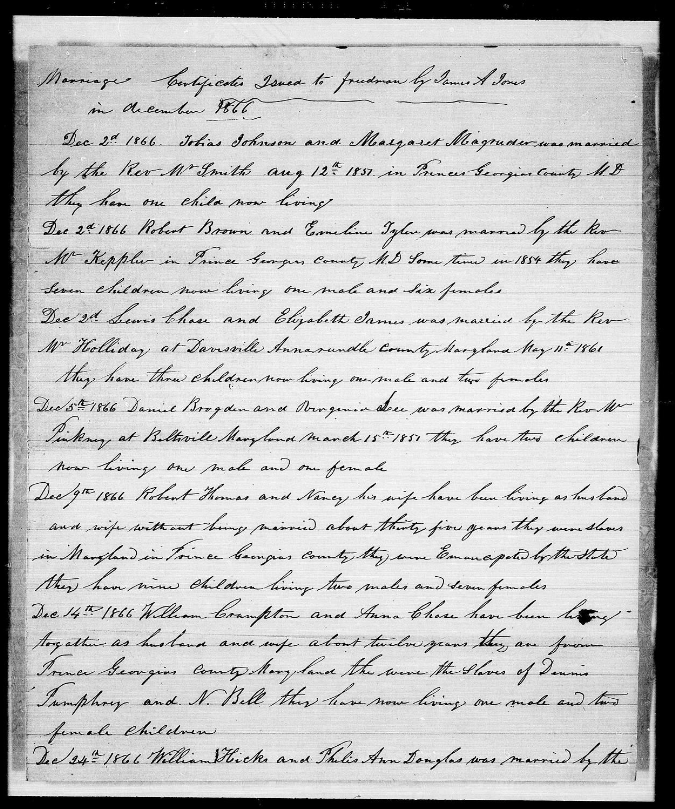 Marriage Certificates Issued to freedman by James A Jones
in december 1866
Dec 2d 1866. Tobias Johnson and Margaret Magruder was married
by the Rev Mr Smith aug 12th 1851 in Princes Georgias County MD
they have one child now living
Dec 2d 1866 Robert Brown and Emeline Tyler was married by the Rev
Mr Keppler in Prince Georgies County MD Some time in 1854 they have
seven children now living one male and six females
Dec 2d Lewis Chase and Elizabeth James was married by the Rev
Mr Holliday at Davisville Annarundle County Maryland May 11th 1861
they have three children now living one male and two females
Dec 5th 1866 Daniel Brogden and Virginia Lee was married by the Rev Mr
Pinkney at Beltsville Maryland march 15th 1851 they have two children
now living one male and one female
Dec 9th 1866 Robert Thomas and Nancy his wife have been living as husband
and wife without being married about thirty five years they were slaves
in Maryland in Prince Georgias county they were Emancapated by the State
they have nine children living two males and seven females
Dec 14th 1866 William Crampton and Anna Chase have been living
togather as husband and wife about twelve years they are from
Prince Georgias County Maryland the were the Slaves of Dennis
and N. Bell they have now living one male and two
female children
Dec 24th 1866 William Hicks and Philis Ann Douglas was married by the